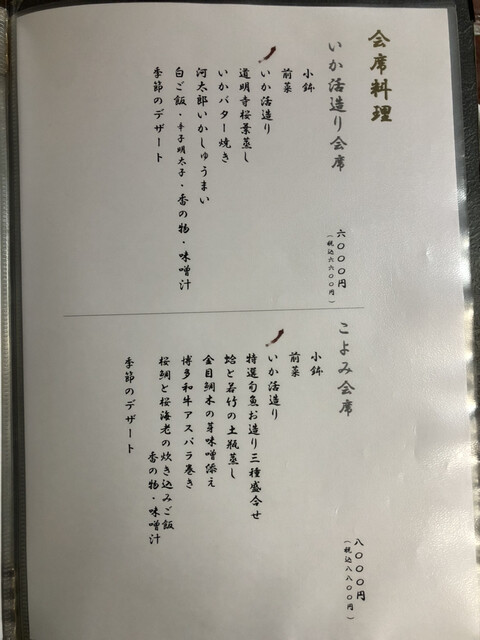 会席料理
いか活造り会席
六〇〇〇円
(税込六六〇〇円)
小鉢
前菜
いか活造り
道明寺桜葉蒸し
いかバター焼き
河太郎いかしゅうまい
白ご飯・辛子明太子・香の物・味噌汁
季節のデザート
こよみ会席
八〇〇〇円
(税込八八〇〇円)
小鉢
前菜
いか活造り
特選旬魚お造り三種盛合せ
蛤と若竹の土瓶蒸し
金目鯛木の芽味噌添え
博多和牛アスパラ巻き
桜鯛と桜海老の炊き込みご飯
香の物・味噌汁
季節のデザート